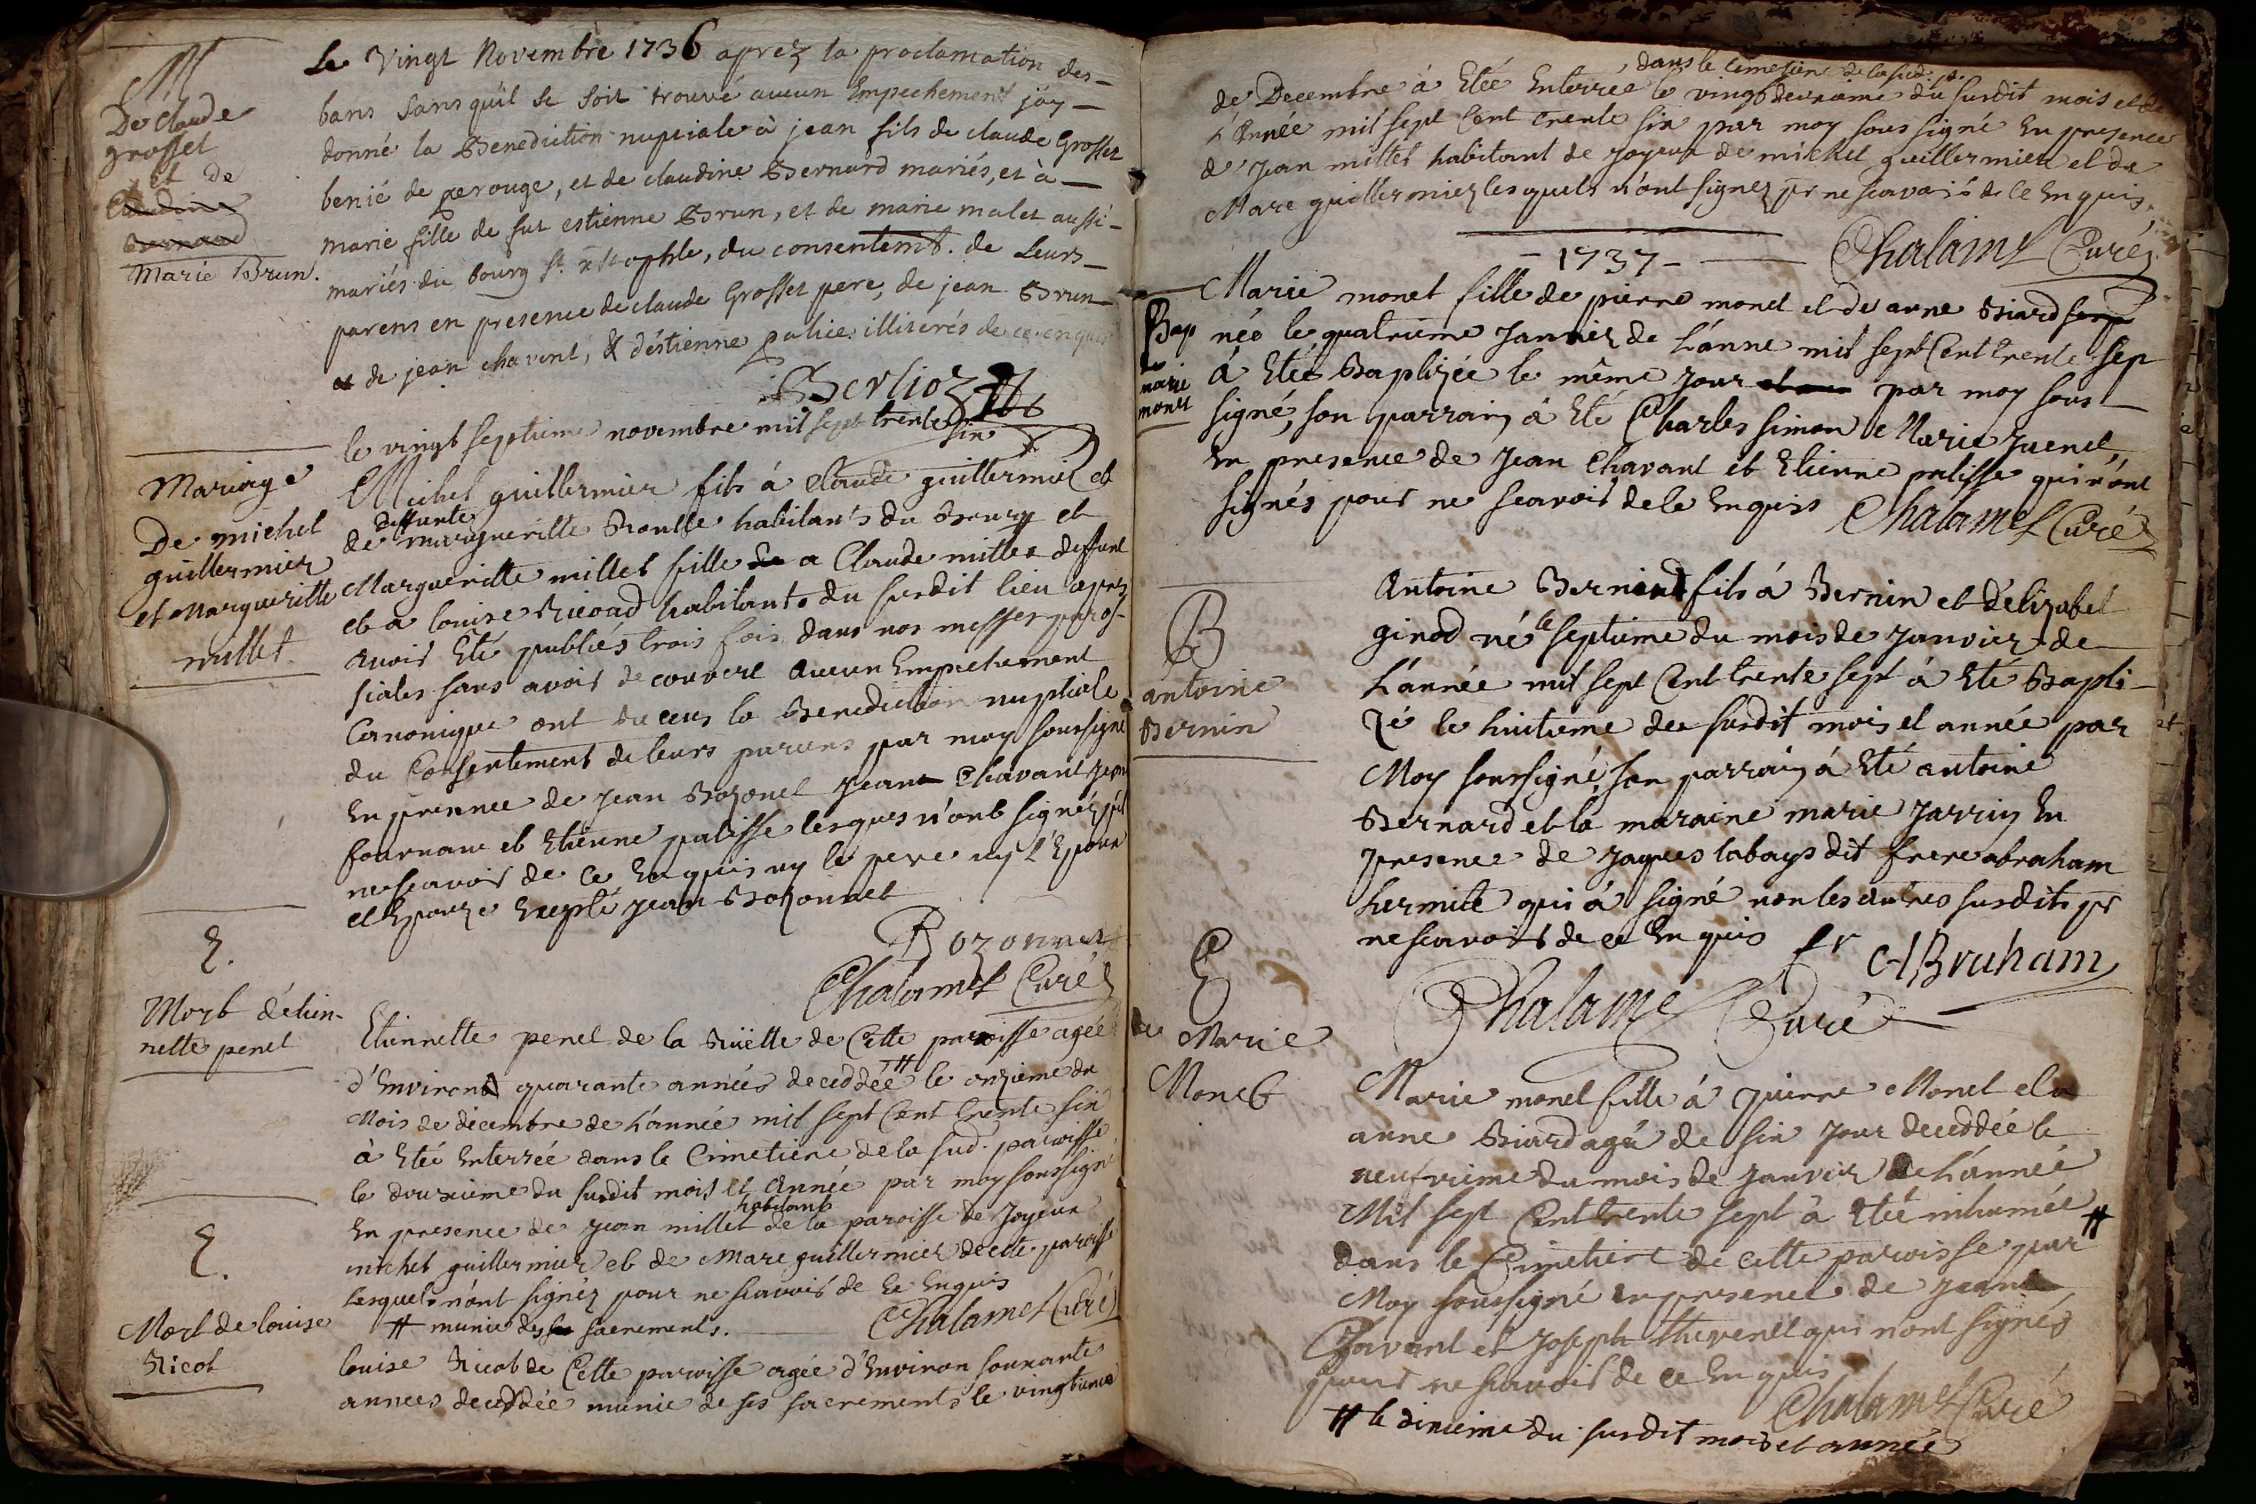 M
De Claude
grosset
et de
Claudine
Bernard
Marie Brun.
Le Vingt Novembre 1736 aprez la proclamation des
bans sans qu'il se soit trouvé aucun Empechement j'ay
donné la Benediction nuptiale à jean fils de claude Grosset
benié de perouge, et de claudine Bernard mariés, et à
marie fille de fut estienne Brun, et de marie malet aussi
mariés du bourg St. xstophle, du consentemt. de Leurs
parens en presence de claude Grosset pere, de jean Brun
et de jean chavent, & d'éstienne palice illiterés de ce enquis
Berlioz
Mariage
De michel
guillermier
et Margueritte
millet
le vingt septieme novembre mil sept trente six
Michel guillermier fils à Claude guillermier et
de deffunte margueritte Roulle habitants du Bourg et
Margueritte millet fille de a Claude millet deffunt
et a louise Ricoad habitants du susdit lieu aprez
avoir Eté publiés trois fois dans nos messes parois-
siales sans avoir decouvert aucun Empechement
Canonique ont receus la Benediction nuptiale
du Consentement de leurs parens par moy soussigné
En presence de jean Bozonet jean Chavant jean
fournane et Etienne palisse lesques n'ont signéz pr
ne scavoir de ce Enquis ny le pere ny l'Epoux
et Epouze Excepté jean Bozonnet
Bozonnet
Chalamel Curé
E.
Mort d'étien-
nette penet
Etiennette penet de la Ruëtte de Cette paroisse agée
d'Environ quarante années deceddée # le onzieme du
Mois de décembre de L'année mil sept Cent trente six
à Eté Enterrée dans le Cimetiere de la sud. paroisse
le douzieme du susdit mois et Année par moy soussigné
En presence de jean millet habitant de la paroisse de Joyeux
michel guillermier et de Marc guillermier de cette paroisse
lesquels n'ont signéz pour ne scavoir de ce Enquis
# munie des sacrements.
Chalamel Curé
E.
Mort de louise
Ricot
louise Ricot de Cette paroisse agée d'Environ soixante
annees deceddée munie de ses sacrements le vingtieme
dans le cimetiere de la sud. pa.
de Decembre à Etée Enterrée le vingt deuxieme du susdit mois et de
L'Année mil sept Cent trente six par moy sous signé En presence
de jean millet habitant de joyeux de michel guillermier et de
Marc guillermier lesquels n'ont signez pr ne scavoir de ce Enquis.
Chalamel Curé
- 1737 -
Bap
de
marie
monet
Marie monet fille de pierre monet et de anne Biard
née le quatrieme janvier de L'anne mil sept Cent trente sep
à Etée Baptizée le même jour par moy sous
signé, son parrain à Eté Charles simon Marie juenet
En presence de jean Chavant et Etienne palisse qui n'ont
signés pour ne scavoir de le Enquis Chalamel Curé
B
antoine
Bernin
Antoine Bernin fils à Bernin et d'elizabet
ginod né le septieme du mois de janvier de
L'année mil sept Cent trente sept à Eté Bapti-
zé le huitieme de susdit mois et année par
Moy soussigné, son parrain à Eté antoine
Bernard et la maraine marie jarrin En
presence de jaques labays dit frere abraham
hermite qui à signé non les autres susdits pr
ne scavoir de ce Enquis fr ABraham
Chalamel Curé
E
de Marie
Monet
Marie monet fille à pierre Monet et a
anne Biard agée de six jour deceddée le
neufvieme du mois de janvier de L'année
Mil sept Cent trente sept à Etée inhumée #
dans le Cimetiere de cette paroisse par
Moy soussigné en presence de jean
Chavant et joseph thevenet qui n'ont signés
pour ne scavoir de ce Enquis
Chalamel Curé
# le dixieme du susdit mois et année